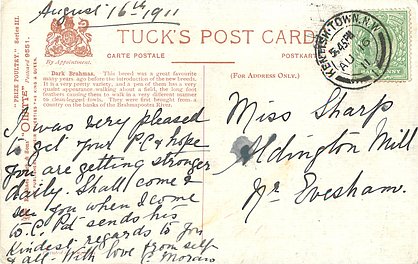 August 16th 1911
TUCK'S POST CARD
CARTE POSTALE
POSTKARTE
By Appointment.
(For Address Only.)
"PRIZE POULTRY" Series III.
"OILETTE"
Postcard 9551.
Dark Brahmas. This breed was a great favourite
many years ago before the introduction of the new breeds.
It is a very pretty variety, and a pen of them has a very
quaint appearance walking about a field, the long foot
feathers causing them to walk in a very different manner
to clean legged fowls. They were first brought from a
country on the banks of the Brahmapootra River.
KENTISH-TOWN.N.W
5.45PM
AU 16
11
I was very pleased
to get your P.C & hope
you are getting stronger
daily. Shall come &
see you when I come
to C. Pa sends his
kindest regards to you
& all. With love from self
Miss Sharp
Aldington Mill
Nr. Evesham.